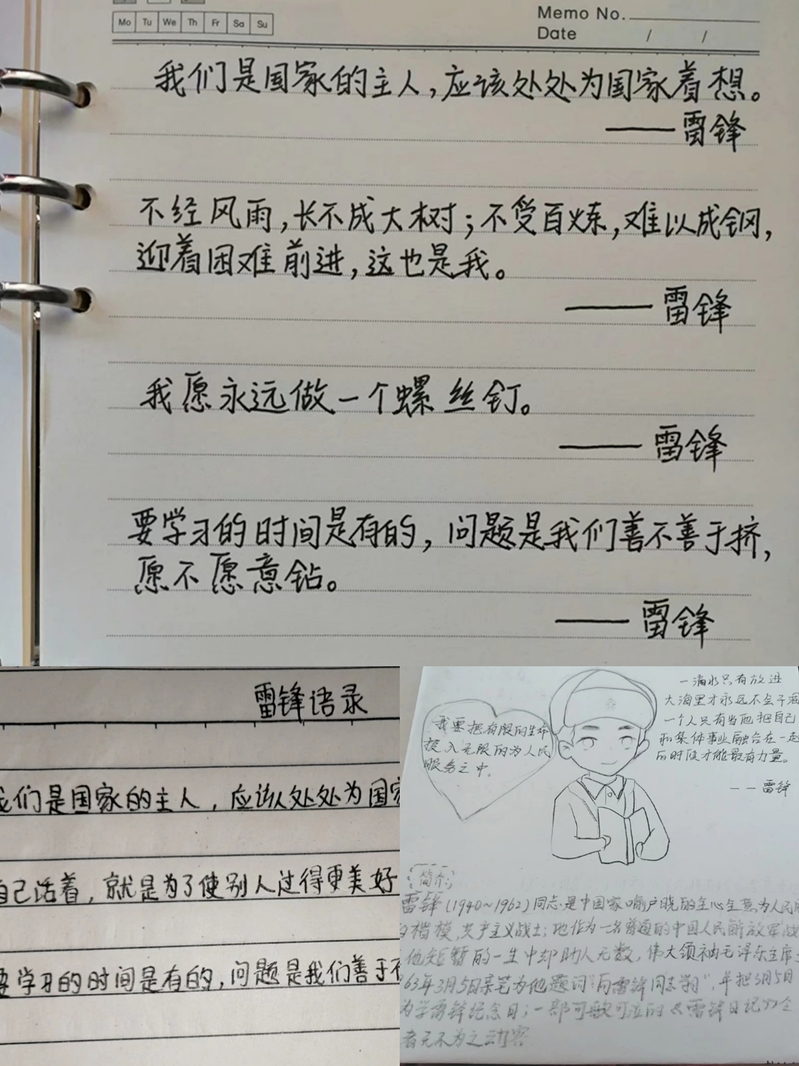 Mo Tu We Th Fr Sa Su
Memo No.
Date / /
我们是国家的主人，应该处处为国家着想。
——雷锋
不经风雨，长不成大树；不受百炼，难以成钢，
迎着困难前进，这也是我。
——雷锋
我愿永远做一个螺丝钉。
——雷锋
要学习的时间是有的，问题是我们善不善于挤，
愿不愿意钻。
——雷锋
雷锋语录
我们是国家的主人，应该处处为国家
自己活着，就是为了使别人过得更美好
要学习的时间是有的，问题是我们善于不
我要把有限的生命
投入无限的为人民
服务之中.
一滴水只有放进
大海里才永远不会干涸
一个人只有当他把自己
和集体事业融合在一起
的时候才能最有力量。
——雷锋
简介
雷锋(1940~1962)同志是中国家喻户晓的全心全意为人民服
的楷模，共产主义战士；他作为一名普通的中国人民解放军战
他短暂的一生中却助人无数，伟大领袖毛泽东主席
63年3月5日亲笔为他题词"向雷锋同志学习"，并把3月5日
为学雷锋纪念日；一部可歌可泣的《雷锋日记》令
者无不为之动容